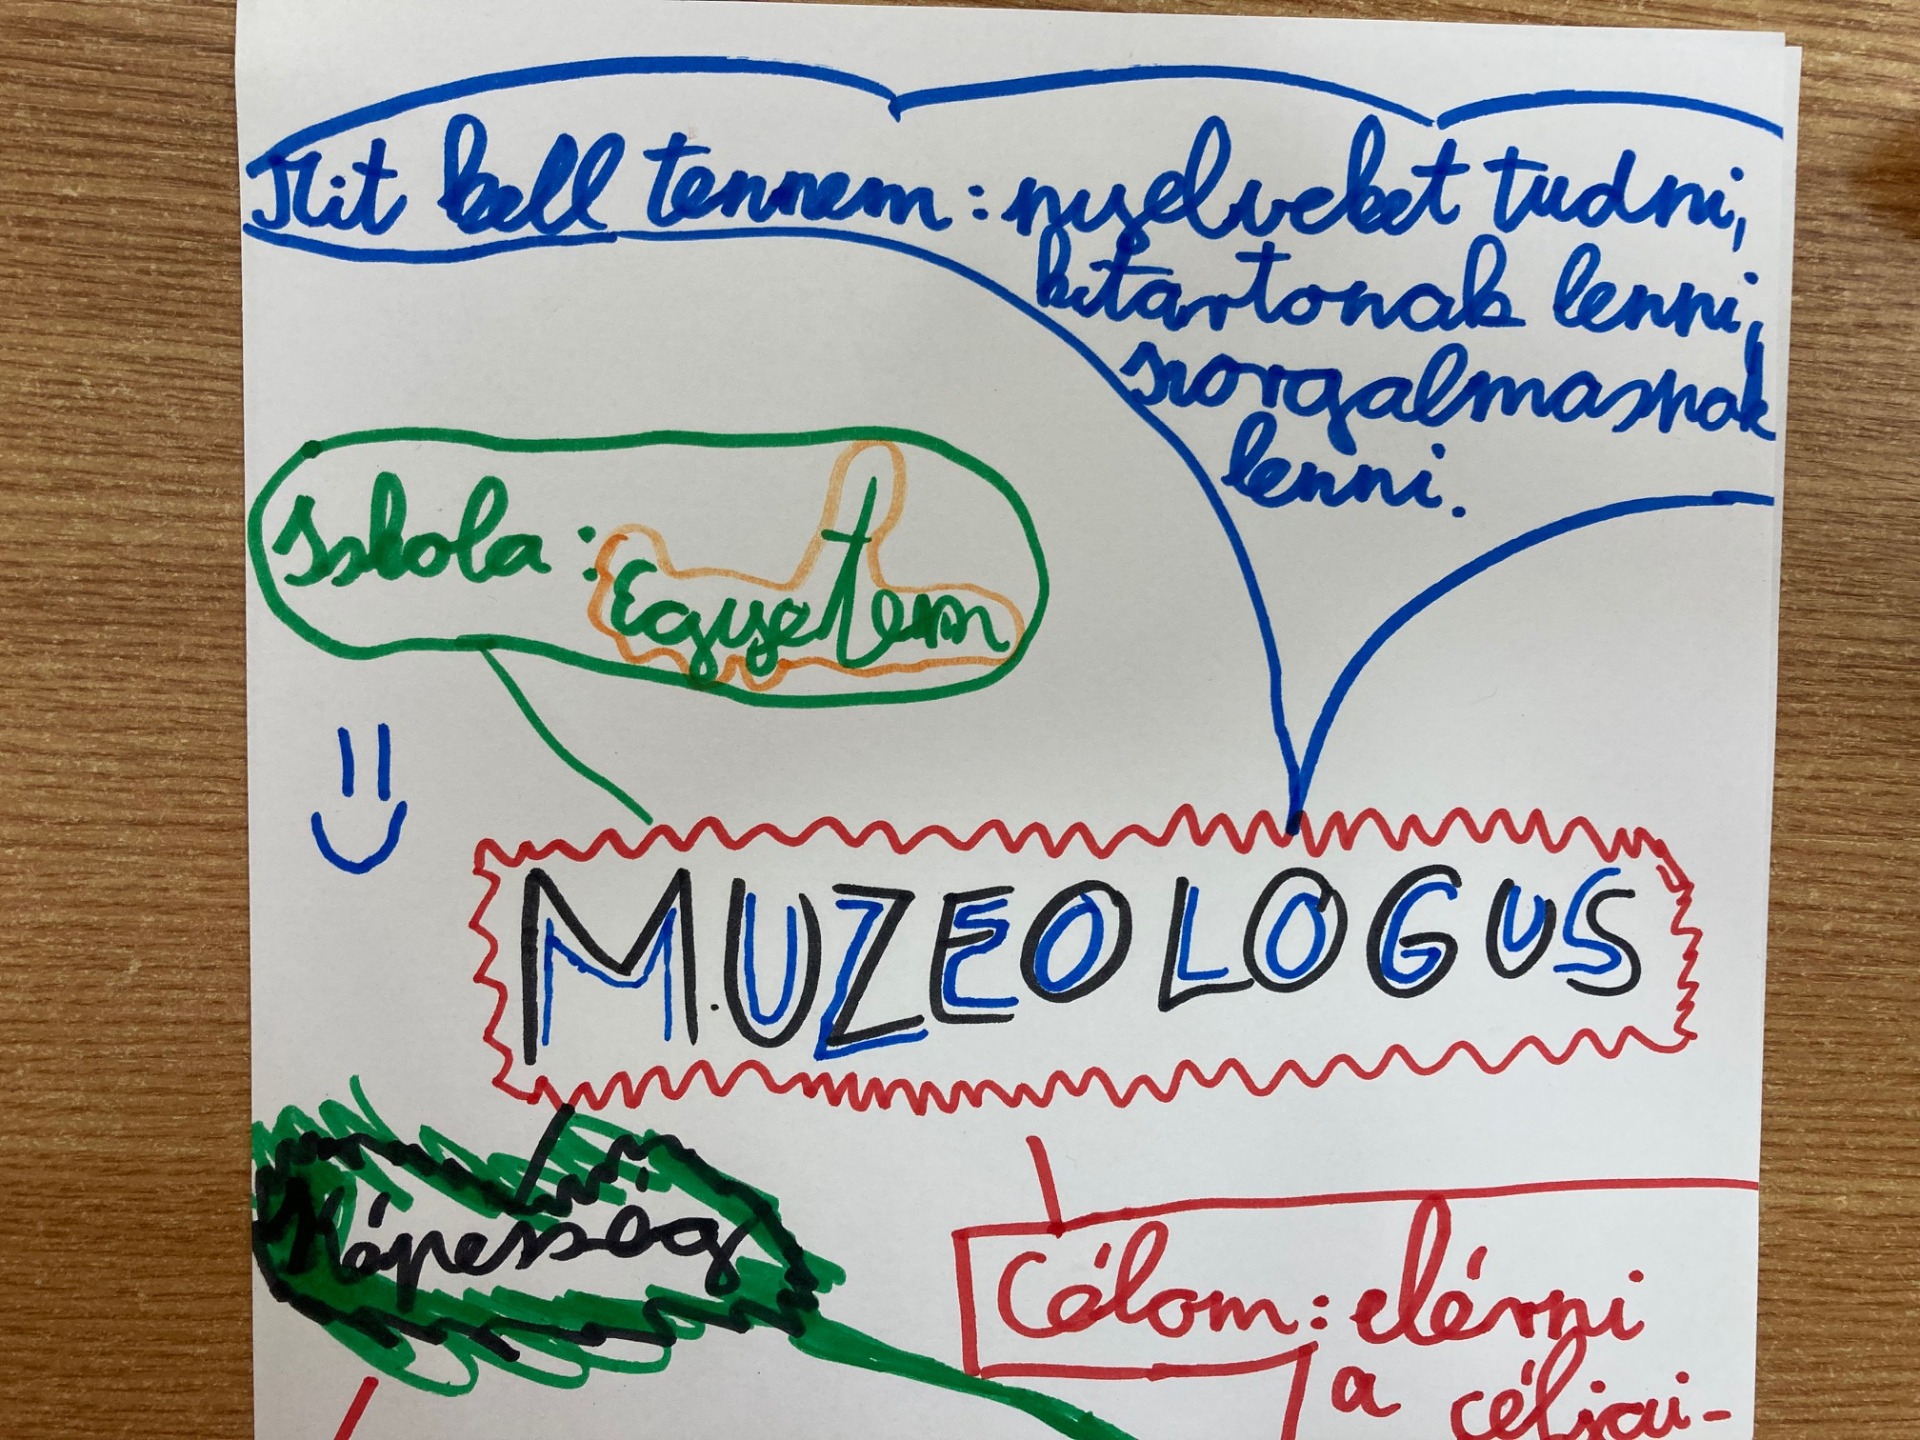 Mit kell tennem: nyelveket tudni,
kitartonak lenni,
szorgalmasnak
lenni.
Iskola:
Egyetem
MUZEOLOGUS
Képesség
Célom: elérni
a céljai-